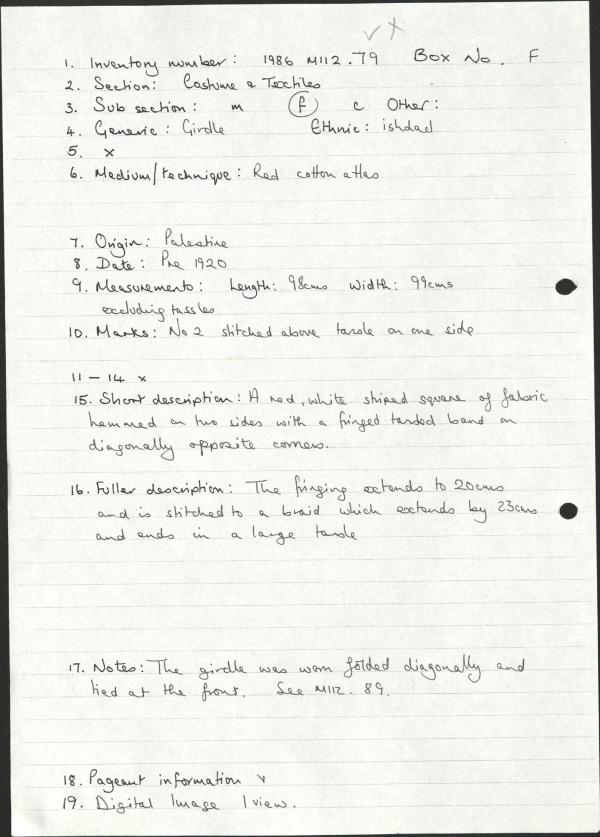 ✓ X
1. Inventory number: 1986 M112.79 Box No. F
2. Section: Costume & Textiles
3. Sub section: m f c Other:
4. Generic: Girdle Ethnic: ishdad
5. x
6. Medium/technique: Red cotton atlas
7. Origin: Palestine
8. Date: Pre 1920
9. Measurements: Length: 98cms Width: 99cms
excluding tassles
10. Marks: No 2 stitched above tassle on one side
11 – 14 x
15. Short description: A red, white striped square of fabric
hemmed on two sides with a fringed tassled band on
diagonally opposite corners.
16. Fuller description: The fringing extends to 20cms
and is stitched to a braid which extends by 23cms
and ends in a large tassle
17. Notes: The girdle was worn folded diagonally and
tied at the front. See M112.89.
18. Pageant information v
19. Digital Image 1 view.